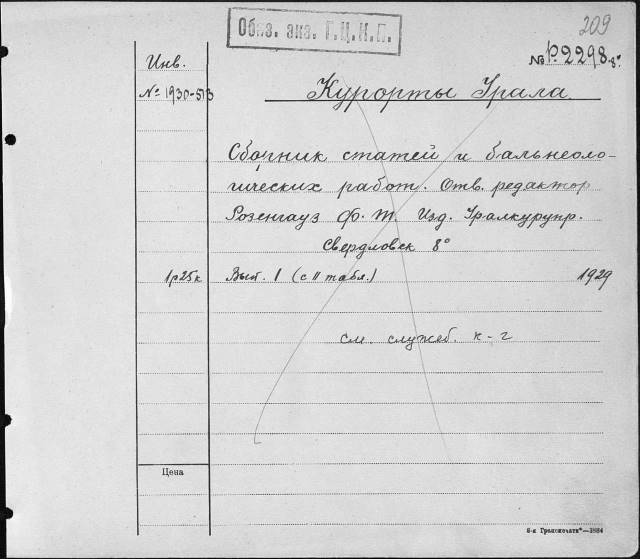 209
Обяз. экз. Г.Ц.К.П.
Инв.
№ р.2298 8°
№ 1930-513
Курорты Урала
Сборник статей и бальнеоло-
гических работ. Отв. редактор
Розенгауз Ф. М. Изд. Уралкурупр.
Свердловск 8°
1р25к Вып. 1 (с 11 табл.) 1929
см. служеб. к-г
Цена
„Гранпечать“—1884